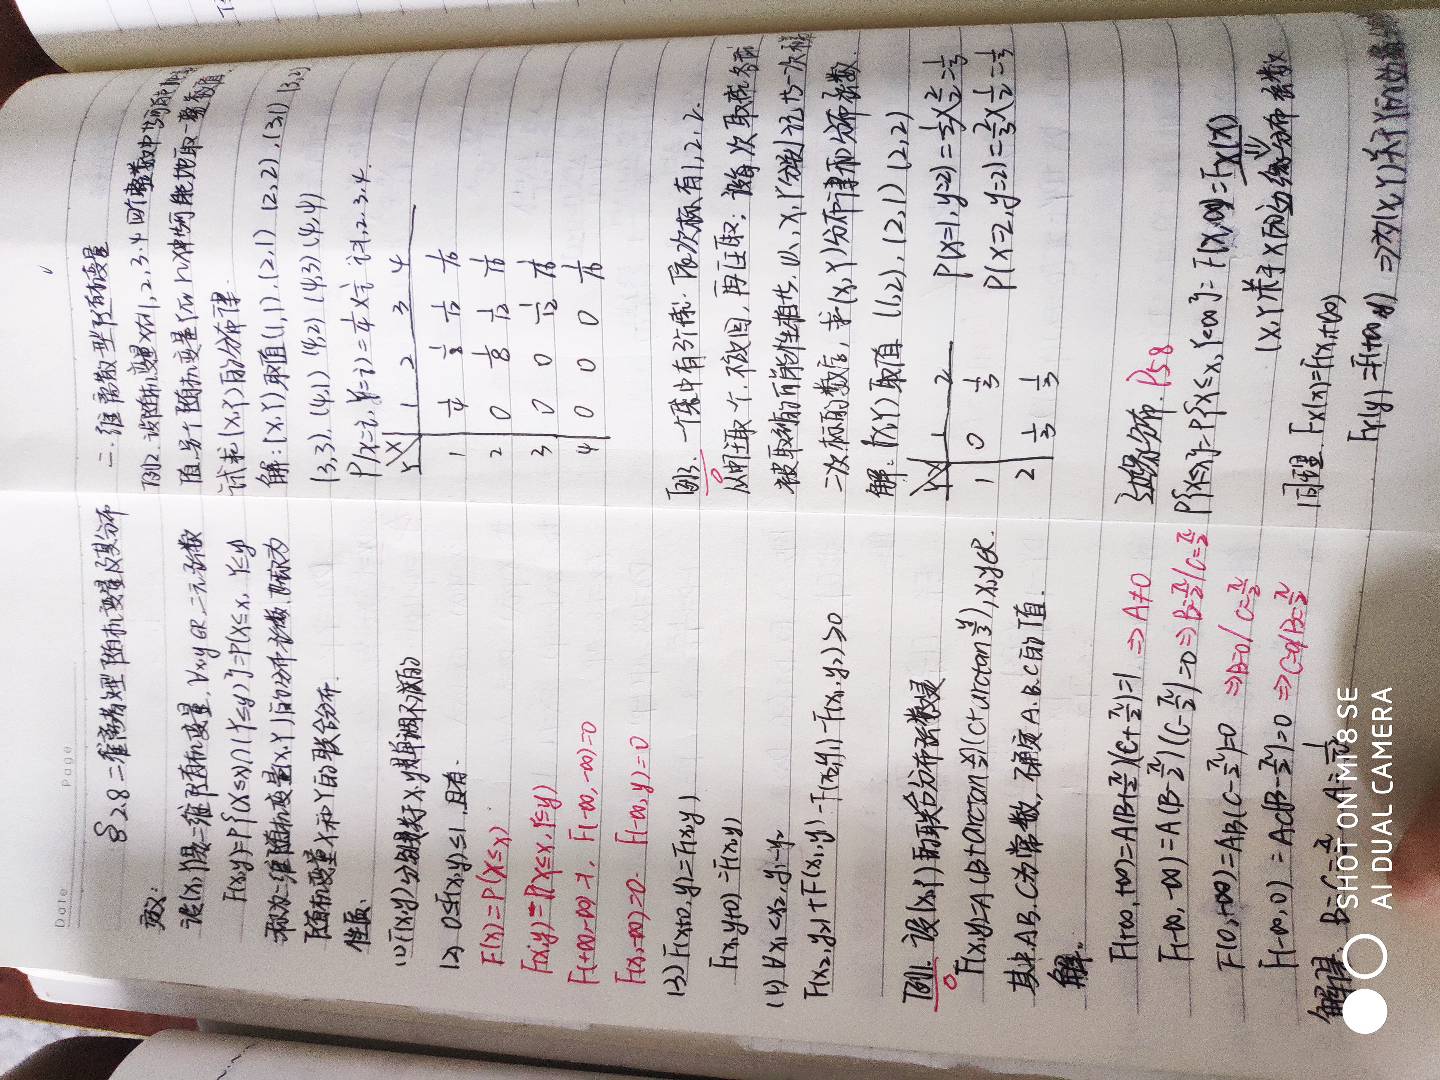 Date Page
§2.8 二维离散型随机变量及其分布
定义:
设(X,Y)是二维随机变量, ∀x,y∈R, 二元函数
F(x,y)=P{(X≤x)∩(Y≤y)}=P(X≤x, Y≤y)
称为二维随机变量(X,Y)的分布函数, 或称为
随机变量X和Y的联合分布.
性质:
(1) F(x,y)分别是关于x,y是单调不减的
(2) 0≤F(x,y)≤1, 且有.
F(x)=P(X≤x)
F(x,y)=P(X≤x, Y≤y)
F(+∞,-∞)=1, F(-∞,-∞)=0
F(x,-∞)=0. F(-∞,y)=0
(3) F(x+0,y)=F(x,y)
F(x,y+0)=F(x,y)
(4) ∀x₁<x₂, y₁-y₂
F(x₂,y₂)+F(x₁,y)-F(x₂,y₁)-F(x₁,y₂)≥0
例1. 设(X,Y)的联合分布函数是
F(x,y)=A(B+arctan x/2)(C+arctan y/3), x,y∈R.
其中A,B,C为常数, 确定A.B.C的值.
解.
F(+∞,+∞)=A(B+π/2)(C+π/2)=1 ⇒A≠0
F(-∞,-∞)=A(B-π/2)(C-π/2)=0⇒B=π/2/C=π/2
F(0,+∞)=AB(C-π/2)=0 ⇒B=0/C=π/2
F(-∞,0)=AC(B-π/2)=0 ⇒C=0/B=π/2
解得: B=C=π/2 A=1/π²
SHOT ON MI 8 SE
AI DUAL CAMERA
二.维离散型随机变量
例2. 设随机变量X在1,2,3.4四个整数中等可能地取
值,另个随机变量Y在1~X中等可能地取一整数值.
试求(X,Y)的分布律.
解:(X,Y)取值(1,1),(2,1) (2,2),(3,1) (3,2)
(3,3),(4,1) (4,2) (4,3) (4,4)
P(X=i, Y=j)=1/4×1/i i=1,2.3.4.
Y X 1 2 3 4
1 1/4 1/8 1/12 1/16
2 0 1/8 1/12 1/16
3 0 0 1/12 1/16
4 0 0 0 1/16
例3. 一个袋中有3个球. 依次标有1,2,2.
从中任取一个, 不放回, 再任取; 设每次取球各球
被取到的可能性相等, 以X,Y分别记第一次和第
二次标的数字, 求(X,Y)分布律和分布函数.
解:(X,Y)取值 (1,2),(2,1) (2,2)
Y X 1 2
1 0 1/3
2 1/3 1/3
P(x=1,y=2)=1/3×2/2=1/3
P(x=2,y=2)=2/3×1/2=1/3
边缘分布. P58
P{X≤x}=P{X≤x, Y<∞}=F(x,∞)=Fx(x)
⇓
(X,Y)关于X的边缘分布函数
同理. Fx(x)=F(x,+∞)
FY(y)=F(+∞,y) ⇒为(X,Y)关于Y的边缘